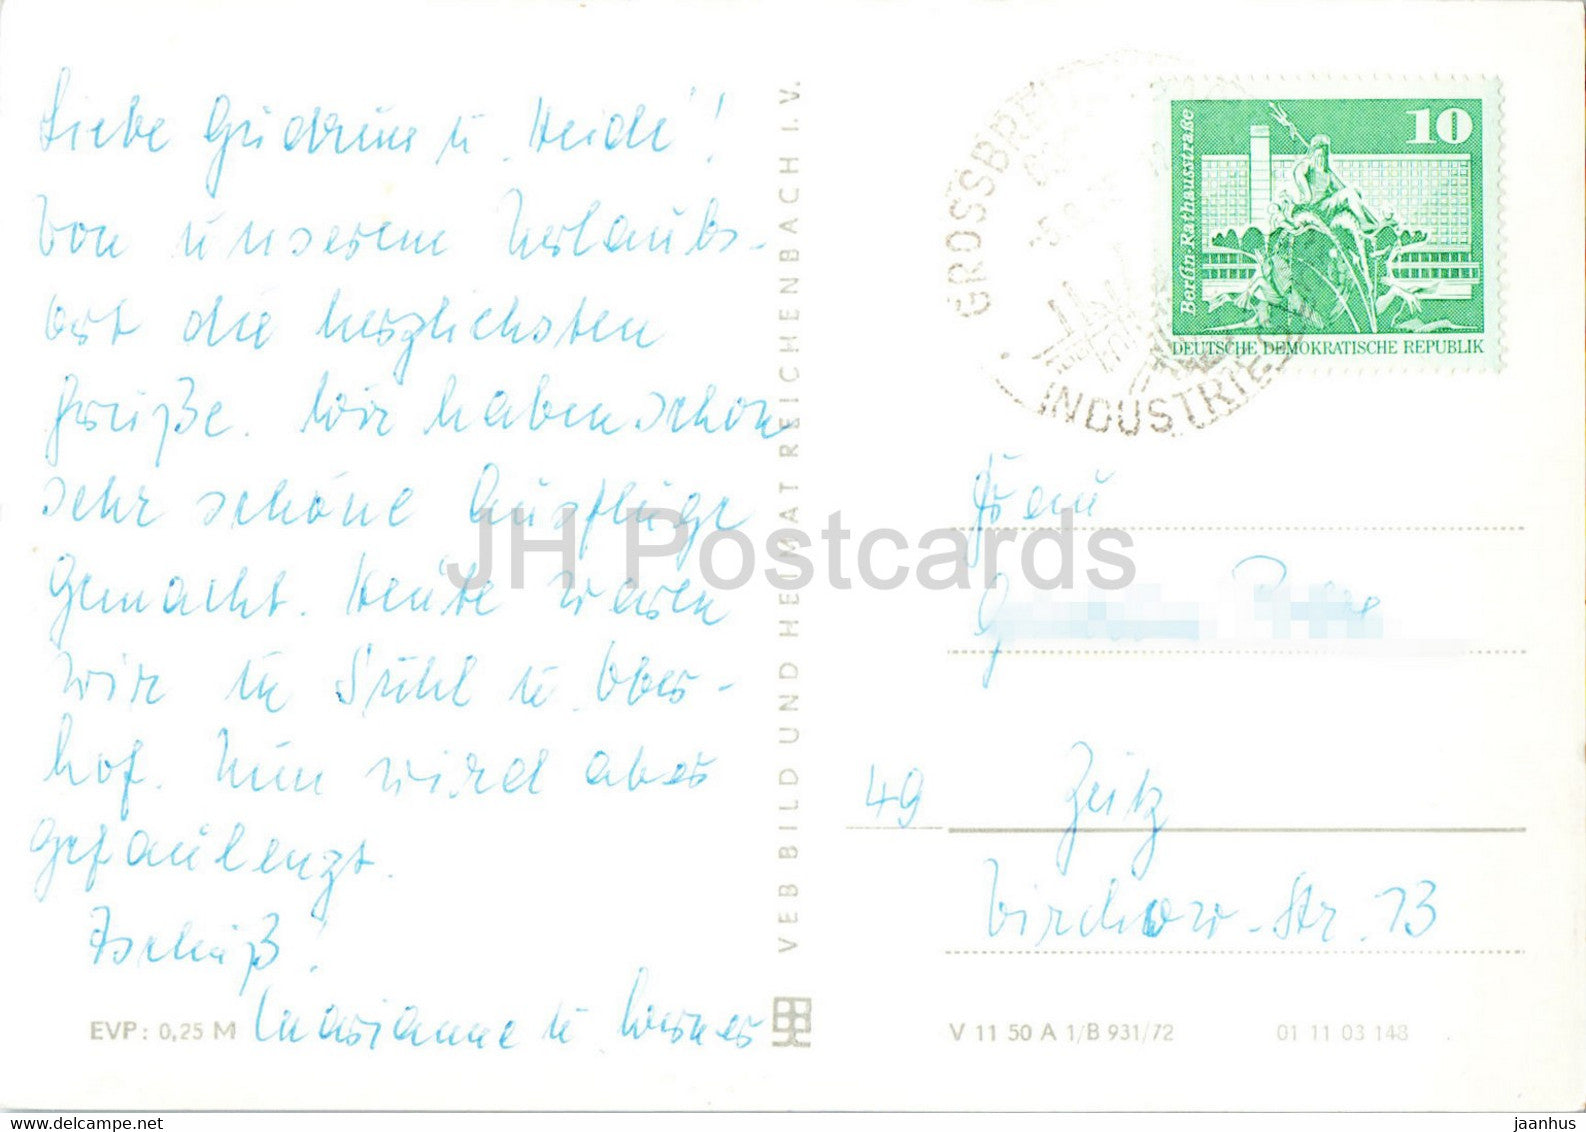 Liebe Gudrun u. Heidi!
Von unserem Urlaubs-
ort die herzlichsten
Grüße. Wir haben schon
sehr schöne Ausflüge
gemacht. Heute waren
wir in Suhl u. Ober-
hof. Nun wird aber
gefaulenzt.
Tschüß!
Marianne u. Werner
EVP: 0,25 M
VEB BILD UND HEIMAT REICHENBACH I. V.
GROSSBRE
INDUSTRIE
10
Berlin-Rathausstraße
DEUTSCHE DEMOKRATISCHE REPUBLIK
Frau
49 Zeitz
Virchow-Str. 13
V 11 50 A 1/B 931/72
01 11 03 148
JH Postcards
jaanhus @ delcampe.net